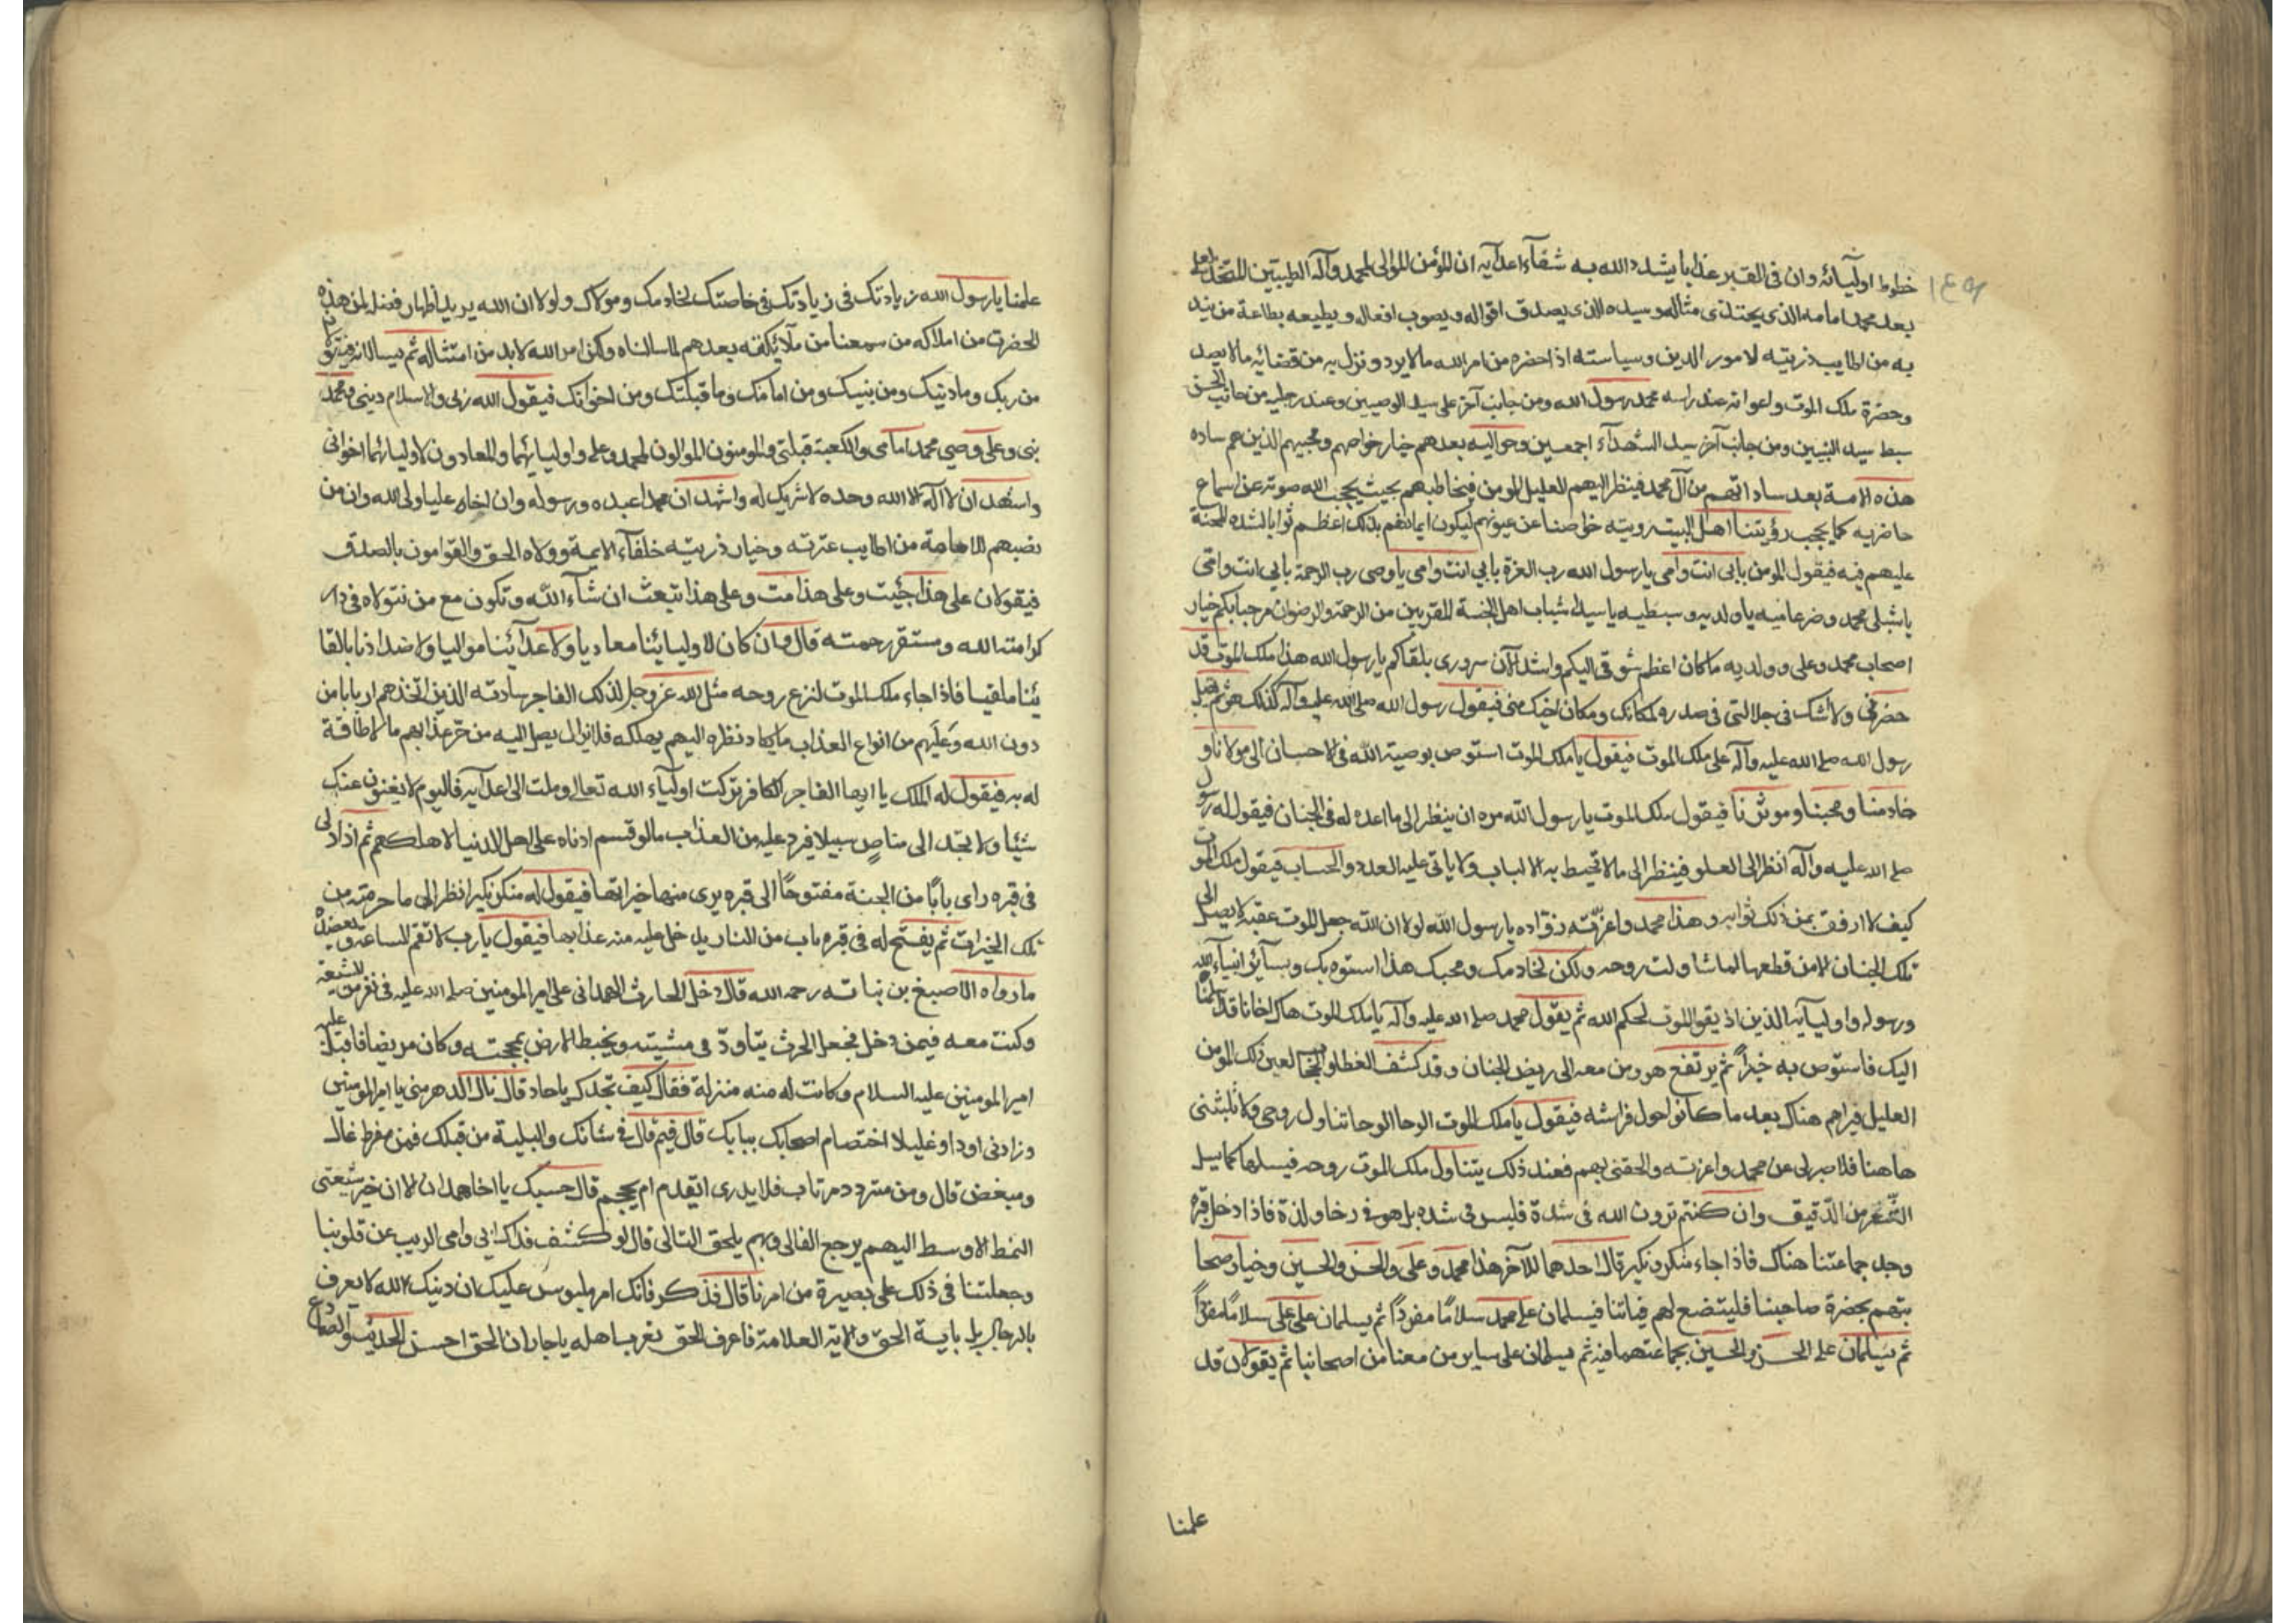 خطوط اوليائه وان فى القبر عذابا يشدد الله به شقآء اعدآيه ان المؤمن الموالى لمحمد وآله الطيبين المتخذ لعلى
بعد محمد امامه الذى يحتذى مثاله وسيده الذى يصدق اقواله ويصوب افعاله ويطيعه بطاعة من يند
به من اطايب ذريته لامور الدين وسياسته اذا حضره من امر الله ما لا يرد ونزل به من قضائه ما لا يصد
وحضرة ملك الموت واعوانه عند راسه محمد رسول الله ومن جانب آخر على سيد الوصيين وعند رجليه من جانب الحسن
سبط سيد النبيين ومن جانب آخر سيد الشهدآء اجمعين وحواليه بعدهم خيار خواصهم ومحبيهم الذين هم ساده
هذه الامة بعد ساداتهم من آل محمد فينظر اليهم العليل المومن فيخاطبهم بحيث يحجب الله صوته عن اسماع
حاضريه كما يحجب رؤيتنا اهل البيت ورويته خواصنا عن عيونهم ليكون ايمانهم بذلك اعظم ثوابا لشده المحنة
عليهم فيه فيقول المومن بابى انت وامى يا رسول الله رب العزة بابي انت وامى يا وصى رب الرحمة بابي انت وامى
يا شبلى محمد وضرغاميه يا ولديه وسبطيه يا سيدا شباب اهل الجنة المقربين من الرحمة والرضوان مرحبا بكم خيار
اصحاب محمد وعلى وولديه ما كان اعظم شوقى اليكم واشد الآن سرورى بلقاكم يا رسول الله هذا ملك الموت قد
حضرنى ولا شك فى جلالتى فى صدره لمكانك ومكان اخيك منى فيقول رسول الله صلى الله عليه وآله كذلك هو ثم يقبل
رسول الله صلى الله عليه وآله على ملك الموت فيقول يا ملك الموت استوص بوصية الله فى الاحسان الى مولانا و
خادمنا ومحبنا وموثرنا فيقول ملك الموت يا رسول الله مره ان ينظر الى ما اعده له فى الجنان فيقول له رسول
صلى الله عليه وآله انظر الى العلو فينظر الى ما لا تحيط به الالباب ولا ياتى عليه العدد والحساب فيقول ملك الموت
كيف لا ارفق بمن ذلك ثوابه وهذا محمد واعزته زواده يا رسول الله لولا ان الله جعل الموت عقبة لا يصل الى
تلك الجنان الا من قطعها لما تناولت روحه ولكن لخادمك ومحبك هذا اسوة بك وبسائر انبياء الله
ورسوله واوليآيه الذين اذيقوا الموت لحكم الله ثم يقول محمد صلى الله عليه وآله يا ملك الموت هاك اخانا قد سلمنا
اليك فاستوص به خيرًا ثم يرتفع هو ومن معه الى ريض الجنان وقد كشف الغطاو الحجاب لعين ذلك المومن
العليل فيراهم هناك بعد ما كانوا حول فراشه فيقول يا ملك الموت الوحا الوحا تناول روحى ولا تلبثنى
هاهنا فلا صبر لى عن محمد واعزته والحقنى بهم فعند ذلك يتناول ملك الموت روحه فيسلها كما يسل
الشعر من الدقيق وان كنتم ترون الله فى شدة فليس فى شده بل هو فى رخا ولذة فاذا دخل قبره
وجد جماعتنا هناك فاذا جاء منكر ونكير قال احدهما للآخر هذا محمد وعلى والحسن والحسين وخيار صحا
بتهم بحضرة صاحبنا فليتضع لهم فياتنا فيسلمان على محمد سلامًا مفردًا ثم يسلمان على على سلامًا مفردًا
ثم يسلمان على الحسن والحسين بجماعتهما فيه ثم يسلمان على ساير من معنا من اصحابنا ثم يقولان قد
علمنا
علمنا يا رسول الله زيادتك فى زيادتك فى خاصتك لخادمك ومولاك ولولا ان الله يريد اظهار فضله لمن هذه
الحضرة من املاكه من سمعنا من ملآئكته بعدهم لما سالناه ولكن امر الله لا بد من امتثاله ثم يسالانه فيقولان
من ربك وما دنيك ومن نبيك ومن امامك وما قبلتك ومن اخوانك فيقول الله ربى والاسلام دينى ومحمد
نبى وعلى وصى محمد امامى والكعبة قبلتى والمومنون الموالون لمحمد وعلى واوليائهما والمعادون لاوليائهما اخوانى
واشهد ان لا اله الا الله وحده لا شريك له واشهد ان محمدا عبده ورسوله وان اخاه عليا ولى الله وان من
نصبهم للامامة من اطايب عترته وخيار ذريته خلفآء الايمة وولاه الحق والقوامون بالصدق
فيقولان على هذا جئيت وعلى هذا مت وعلى هذا تبعث ان شآء الله وتكون مع من تتولاه فى دار
كرامة الله ومستقر رحمته قال وان كان لاوليائنا معاديا ولاعدآئنا مواليا ولاضدادنا بالقا
بنا ملقبا فاذا جاء ملك الموت لنزع روحه مثل الله عز وجل لذلك الفاجر سادته الذين اتخذهم اربابا من
دون الله وعليهم من انواع العذاب ما يكاد نظره اليهم يهلكه فلا يزال يصل اليه من حر عذابهم ما لا طاقة
له به فيقول له الملك يا ايها الفاجر الكافر تركت اوليآء الله تعالى وملت الى اعدآيه فاليوم لا يغنون عنك
شيئا ولا تجد الى مناص سبيلا فيرد عليه من العذاب ما لو قسم ادناه على اهل الدنيا لاهلكهم ثم اذا ادلى
فى قبره راى بابًا من الجنة مفتوحًا الى قبره يرى منها خيراتها فيقول له منكر ونكير انظر الى ما حرمته من
تلك الخيرات ثم يفتح له فى قبره باب من النار يدخل عليه منه عذابها فيقول يا رب لا تقم الساعة ويعضده
ما رواه الاصبغ بن نباته رحمه الله قال دخل الحارث الهمدانى على امير المومنين صلى الله عليه فى نفر من الشيعة
وكنت معه فيمن دخل فجعل الحرث يتاود فى مشيته ويخبط الارض بمحجنه وكان مريضا فاقبل عليه
امير المومنين عليه السلام وكانت له منه منزلة فقال كيف تجدك يا حار قال نال الدهر منى يا امير المومنين
وزادنى اودا وغليلا اختصام اصحابك ببابك قال فيم قال فى شانك والبلية من قبلك فمن مفرط غال
ومبغض قال ومن متردد مرتاب فلا يدرى ايقدم ام يحجم قال حسبك يا اخا همدان الا ان خير شيعتى
النمط الاوسط اليهم يرجع الغالى وبهم يلحق التالى قال لو كشفت فداك ابى وامى الريب عن قلوبنا
وجعلتنا فى ذلك على بصيرة من امرنا قال قدك فانك امر ملبوس عليك ان دنيك الله لا يعرف
بالرجال بل باية الحق والاية العلامة فاعرف الحق تعرف اهله يا حار ان الحق احسن الحديث والصادع